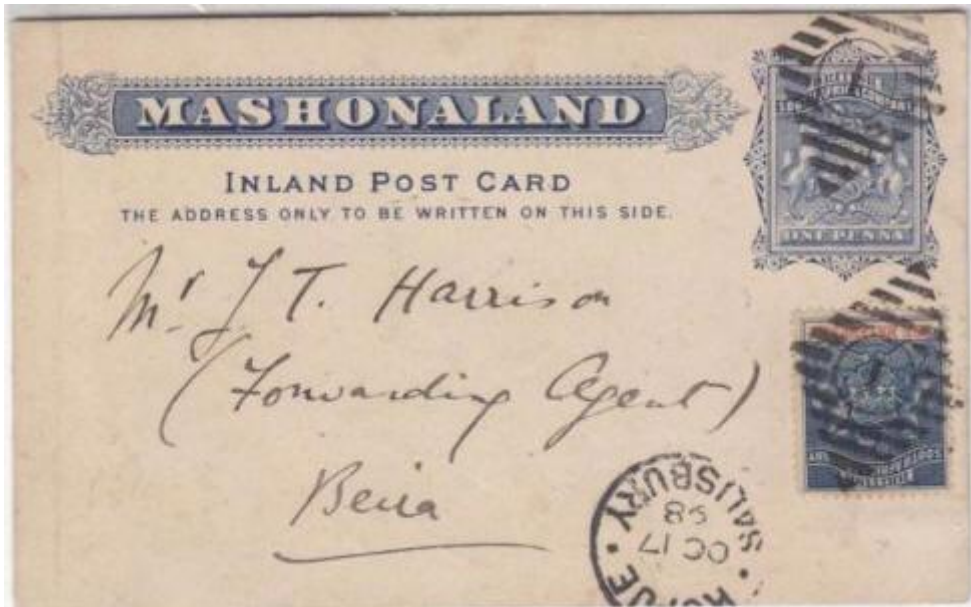 MASHONALAND
INLAND POST CARD
THE ADDRESS ONLY TO BE WRITTEN ON THIS SIDE.
ONE PENNY
Mr J T. Harrison
(Forwarding Agent)
Beira
SALISBURY
OC 17
98